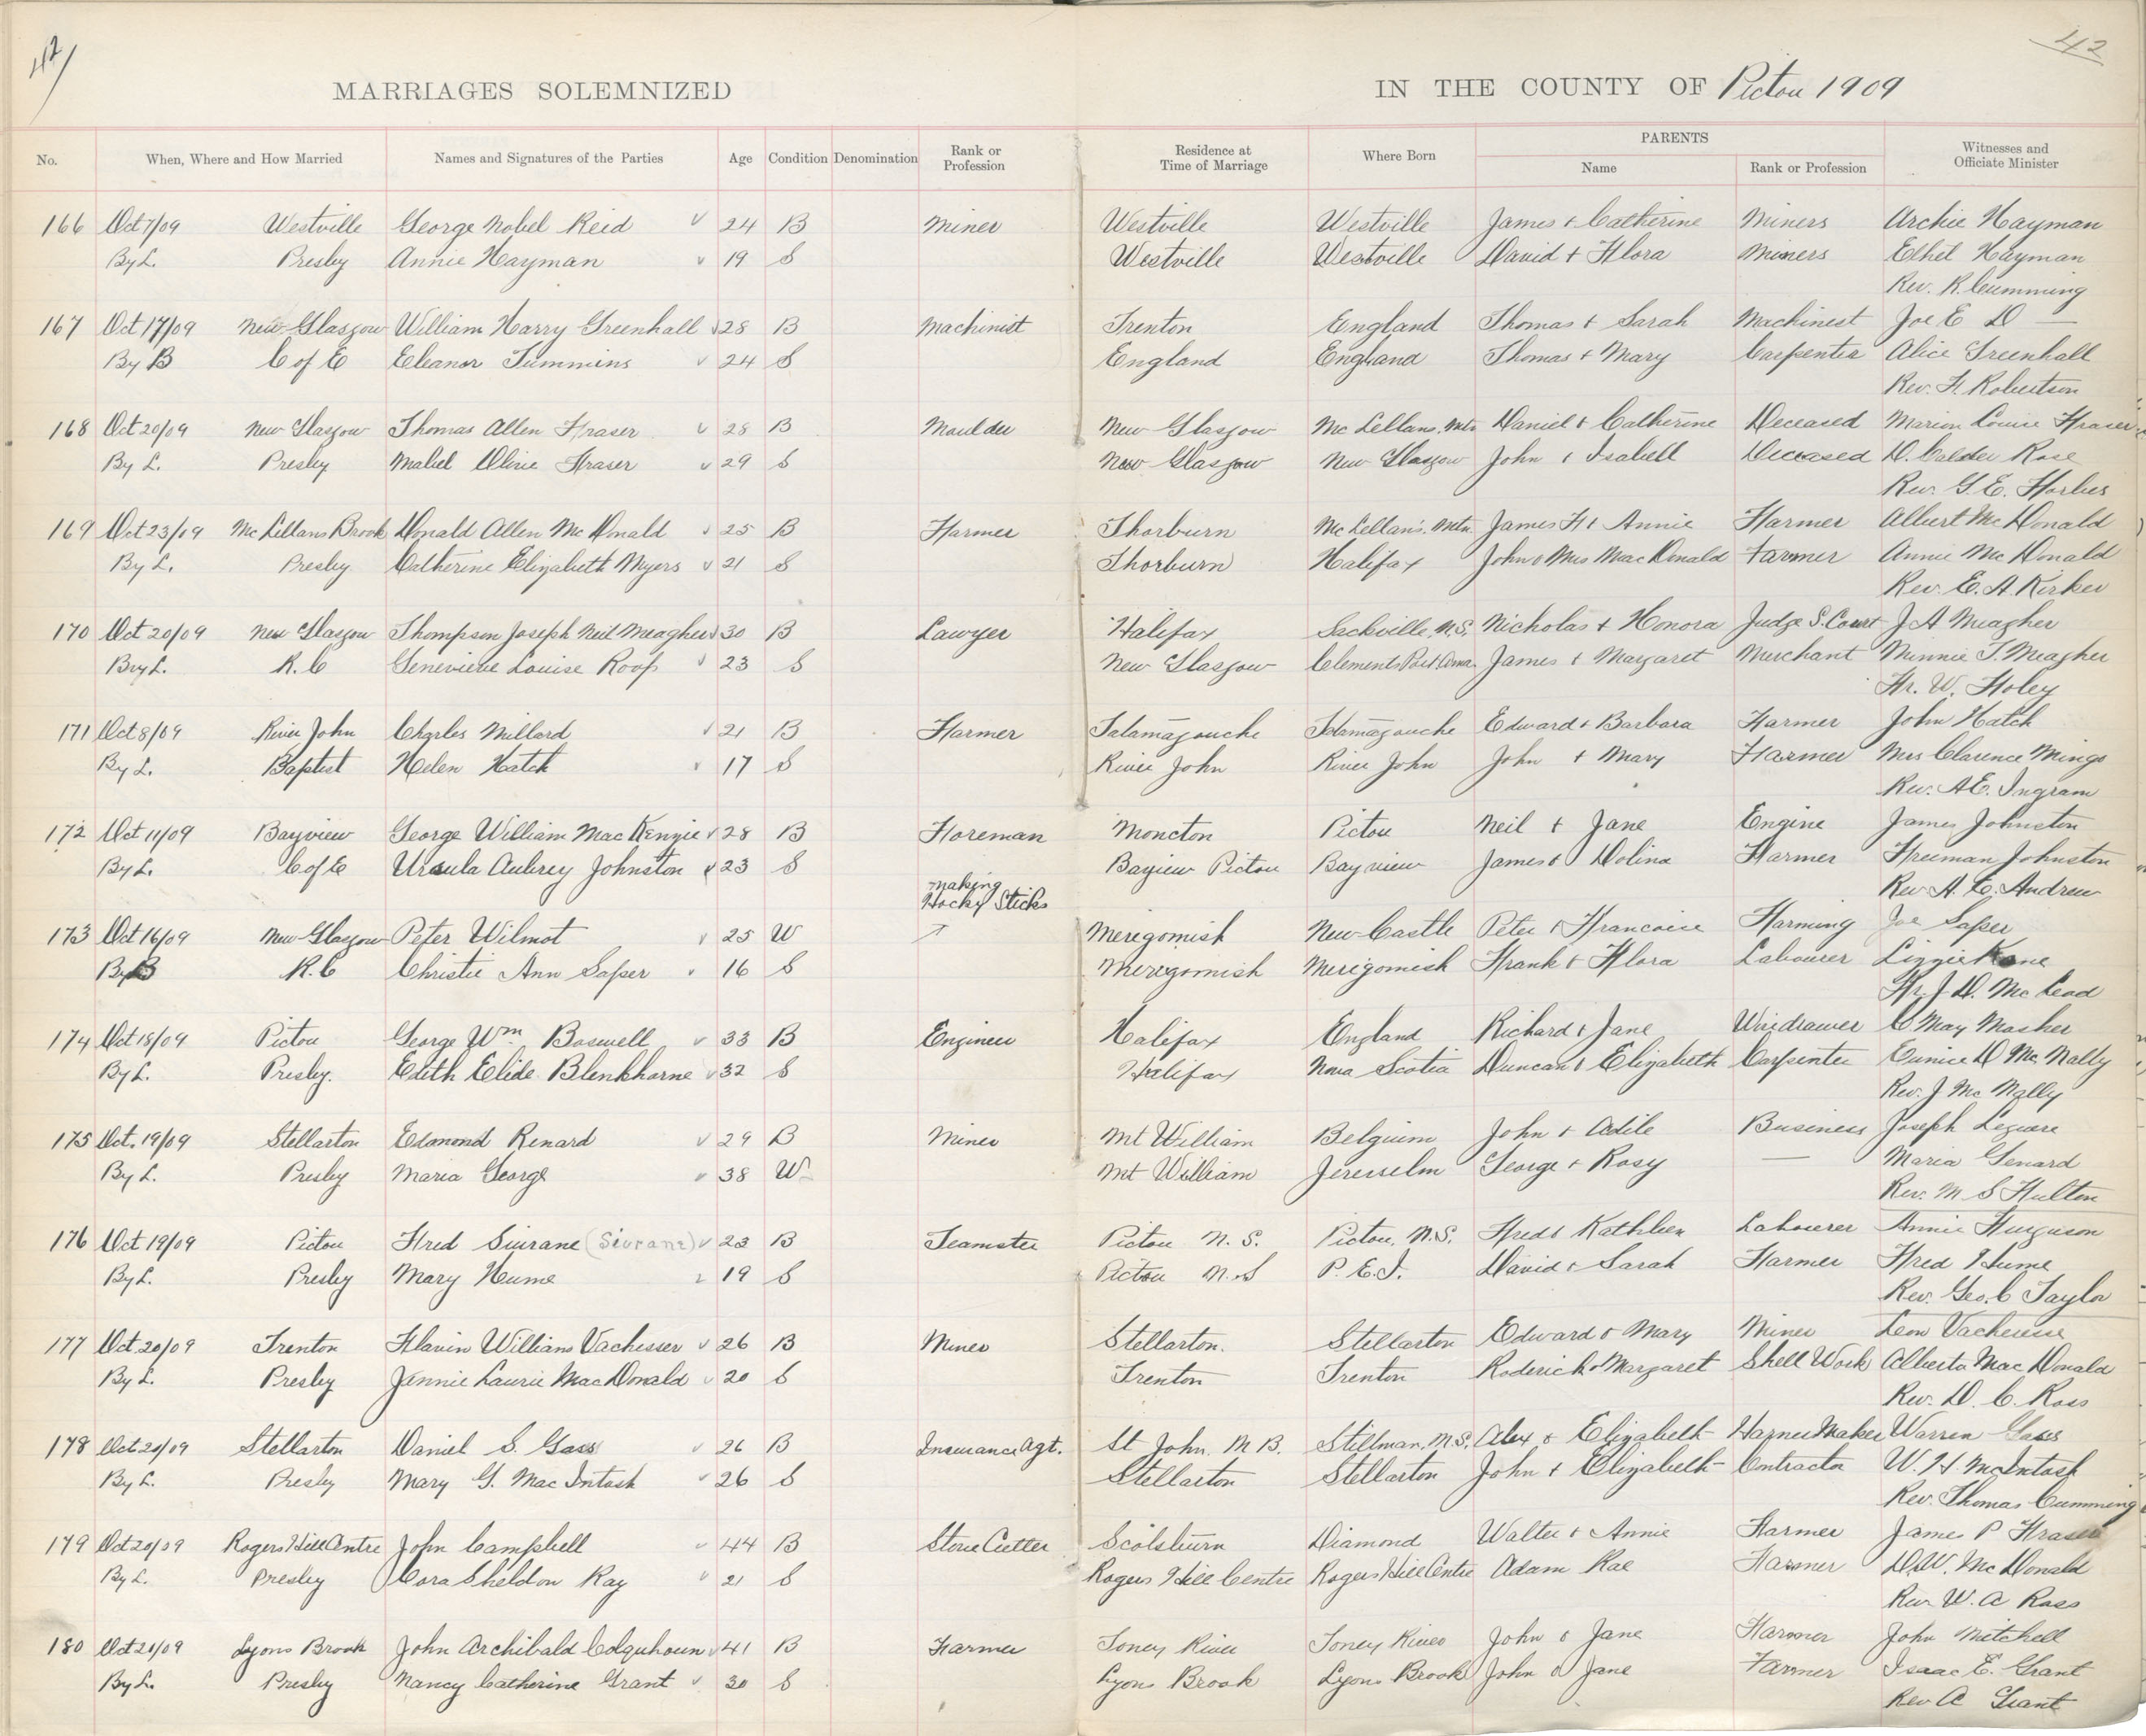 42 42
MARRIAGES SOLEMNIZED IN THE COUNTY OF Pictou 1909
No. When, Where and How Married Names and Signatures of the Parties Age Condition Denomination Rank or Profession Residence at Time of Marriage Where Born PARENTS Name Rank or Profession Witnesses and Officiate Minister
166 Oct 7/09 Westville George Nobel Reid 24 B Miner Westville Westville James + Catherine Miners Archie Hayman
By L. Presby Annie Hayman 19 S Westville Westville David + Flora Miners Ethel Hayman
Rev. R. Cumming
167 Oct 17/09 New Glasgow William Harry Greenhall 28 B Machinist Trenton England Thomas + Sarah Machinest Joe E D —
By B C of E Eleanor Tummins 24 S England England Thomas + Mary Carpenter Alice Greenhall
Rev. F. Robertson
168 Oct 20/09 New Glasgow Thomas Allen Fraser 28 B Moulder New Glasgow Mc Lellans Mtn Daniel + Catherine Deceased Marion Louise Fraser
By L. Presby Mabel Olive Fraser 29 S New Glasgow New Glasgow John + Isabell Deceased D. Calder Rose
Rev. G. E. Forbes
169 Oct 23/09 Mc Lellans Brook Donald Allen Mc Donald 25 B Farmer Thorburn Mc Lellan's Mtn. James F + Annie Farmer Albert Mc Donald
By L. Presby Catherine Elizabeth Myers 21 S Thorburn Halifax John + Mrs Mac Donald Farmer Annie Mc Donald
Rev. E. A. Kirker
170 Oct 20/09 New Glasgow Thompson Joseph Neil Meagher 30 B Lawyer Halifax Sackville, N.S. Nicholas + Honora Judge S. Court J A Meagher
By L. R. C Genevieve Louise Roop 23 S New Glasgow Clements Port, Anna. James + Margaret Merchant Minnie T. Meagher
Fr. W. Foley
171 Oct 8/09 River John Charles Millard 21 B Farmer Tatamagouche Tatamagouche Edward + Barbara Farmer John Hatch
By L. Baptist Helen Hatch 17 S River John River John John + Mary Farmer Mrs Clarence Mingo
Rev. A E. Ingram
172 Oct 11/09 Bayview George William Mac Kenzie 28 B Foreman Moncton Pictou Neil + Jane Engine James Johnston
By L. C of E Ursula Aubrey Johnston 23 S Bayiew Pictou Bayview James + Dolina Farmer Freeman Johnston
Rev A. E. Andrew
making Hocky Sticks
173 Oct 16/09 New Glasgow Peter Wilmot 25 W Merigomish New Castle Peter + Francoise Farming Joe Saper
By B R. C Christie Ann Saper 16 S Merigomish Merigomish Frank + Flora Labourer Lizzie Kane
Fr. J D. Mc Leod
174 Oct 18/09 Pictou George Wm Boswell 33 B Engineer Halifax England Richard + Jane Wiredrawer C May Mosher
By L. Presby. Edith Elide Blenkhorne 32 S Halifax Nova Scotia Duncan + Elizabeth Carpenter Eunice D Mc Nally
Rev. J Mc Nally
175 Oct. 19/09 Stellarton Edmond Renard 29 B Miner Mt William Belgium John + Adile Business Joseph Leguare
By L. Presby Maria George 38 W Mt William Jeresselm George + Rosy — Maria Genard
Rev. M S Fulton
176 Oct 19/09 Pictou Fred Siurane (Siurane) 23 B Teamster Pictou N. S. Pictou, N.S. Fred + Kathleen Labourer Annie Furguson
By L. Presby Mary Hume 19 S Pictou N. S P. E. I. David + Sarah Farmer Fred Hume
Rev. Geo. C Taylor
177 Oct. 20/09 Trenton Flavin William Vachesser 26 B Miner Stellarton. Stellarton Edward + Mary Miner Leon Vacheresse
By L. Presby Jannie Laurie Mac Donald 20 S Trenton Trenton Roderick + Margaret Shell Work Alberta Mac Donald
Rev. D. C. Ross
178 Oct 20/09 Stellarton Daniel S. Gass 26 B Insurance Agt. St John. N B. Stillman, N.S. Alex + Elizabeth Harnes Maker Warren Gass
By L. Presby Mary G. Mac Intosh 26 S Stellarton Stellarton John + Elizabeth Contractor W. H. McIntosh
Rev. Thomas Cumming
179 Oct 20/09 Rogers Hill Centre John Campbell 44 B Stone Cutter Scotsburn Diamond Walter + Annie Farmer James P Fraser
By L. Presby Cora Sheldon Ray 21 S Rogers Hill Centre Rogers Hill Centre Adam Rae Farmer D.W. Mc Donald
Rev W. A Ross
180 Oct 21/09 Lyons Brook John Archibald Colquhoun 41 B Farmer Toney River Toney River John + Jane Farmer John Mitchell
By L. Presby Nancy Catherine Grant 30 S Lyons Brook Lyons Brook John + Jane Farmer Isaac E. Grant
Rev A Grant